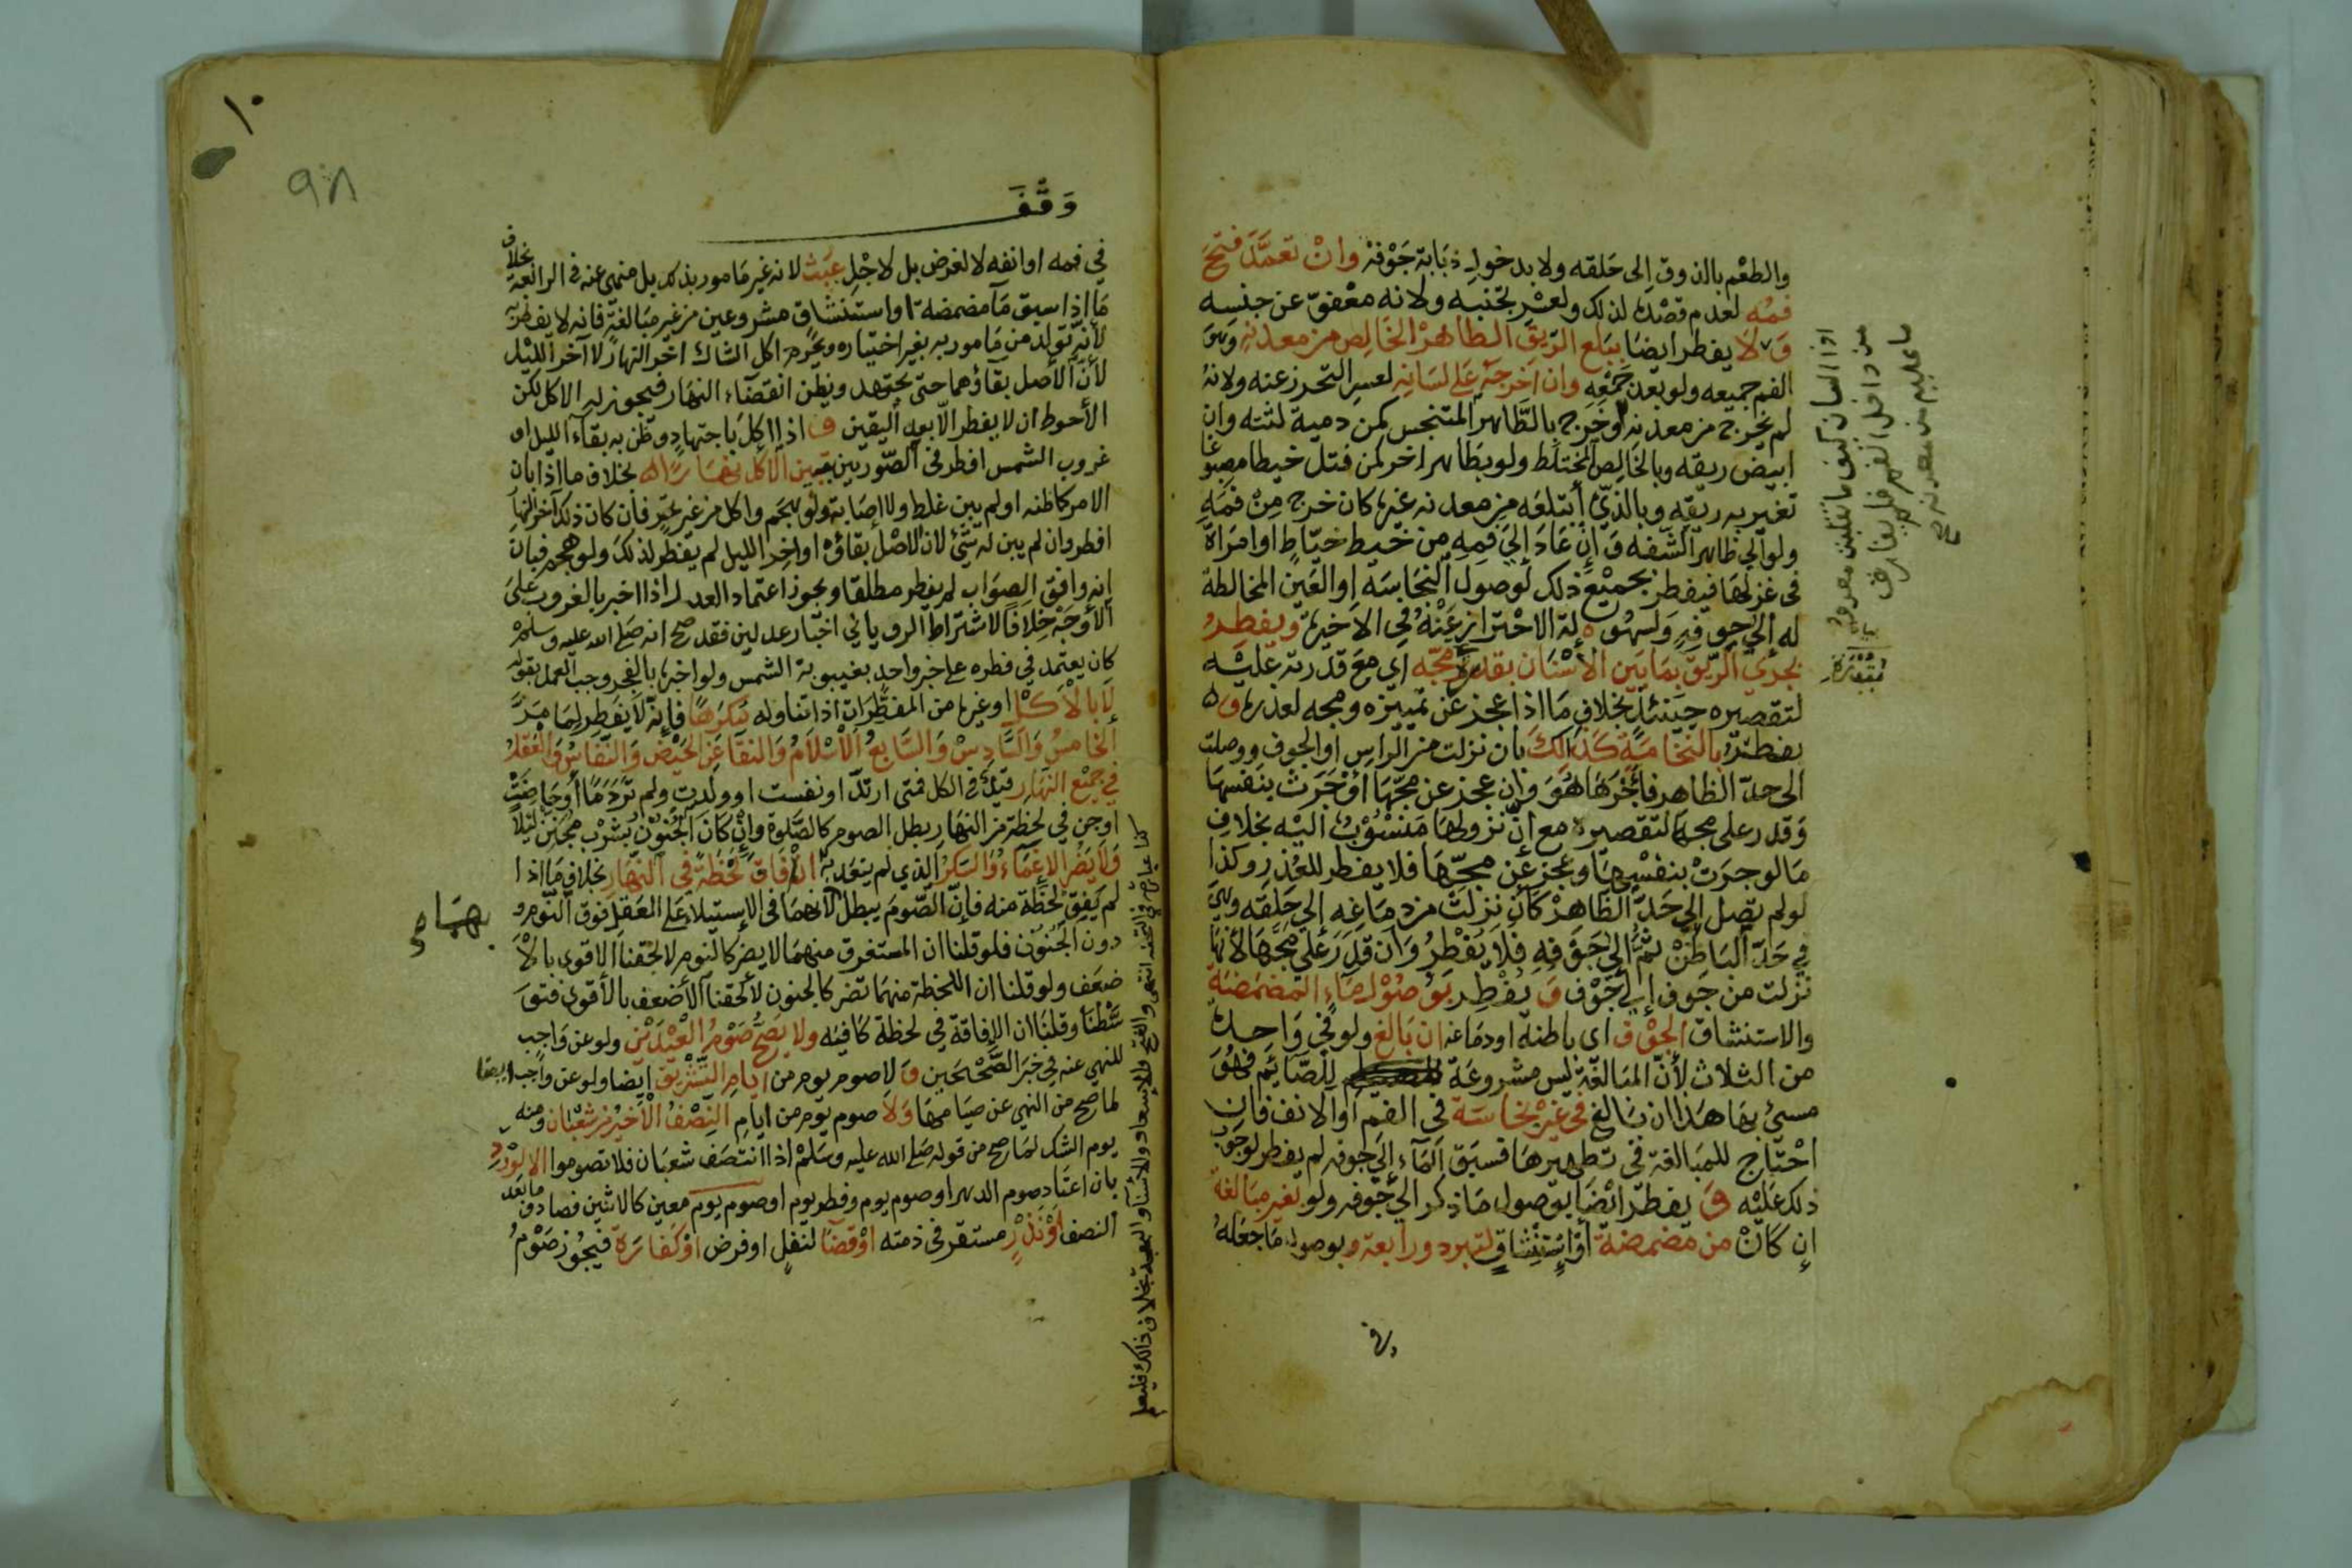 والطعم بالذوق الى حلقه ولا بدخول ذبابة جوفه وان تعمد فتح
فمه لعدم قصده لذلك ولعسر تجنبه ولانه معفو عن جنسه
و لا يفطر ايضا ببلع الريق الطاهر الخالص من معدنه وهو
الفم جميعه ولو بعد جمعه وان اخرجه على لسانه لعسر التحرز عنه ولانه
لم يخرج من معدنه وخرج بالطاهر المتنجس كمن دمية لثته وان
ابيض ريقه وبالخالص المختلط ولو بطاهر اخر كمن فتل خيطا مصبوغا
تغير به ريقه وبالذي ابتلعه من معدنه غيره كان خرج من فمه
ولو الى ظاهر الشفه وان عاد الي فمه من خيط خياط او امراة
في غزلها فيفطر بجميع ذلك لوصول النجاسه او العين المخالطة
له الي جوفه ولسهولة الاحتراز عنه في الاخيرة ويفطر
بجري الريق بما بين الاسنان بقدرة مجه اي مع قدرته عليه
لتقصيره حينئذ بخلاف ما اذا عجز عن تمييزه ومجه لعذره و
يفطر بالنخامة كذالك بان نزلت من الراس او الجوف ووصلت
الى حد الظاهر فاجراها هو وان عجز عن مجها او جرت بنفسها
وقدر على مجها لتقصيره مع ان نزولها منسوب اليه بخلاف
ما لو جرت بنفسها وعجز عن مجها فلا يفطر للعذر وكذا
لو لم تصل الي حد الظاهر كان نزلت من دماغه الي حلقه وهي
في حد الباطن ثم الى جوفه فلا يفطر وان قدر على مجها لانها
نزلت من جوف الي جوف و يفطر بوصول ماء المضمضة
والاستنشاق الجوف اي باطنه او دماغه ان بالغ ولو في واحدة
من الثلاث لان المبالغة ليس مشروعة للصائم فهو
مسئ بها هذا ان بالغ في غير نجاسة في الفم او الانف فان
احتاج للمبالغة في تطهيرها فسبق الماء الي جوفه لم يفطر لوجوب
ذلك عليه و يفطر ايضا بوصول ما ذكر الي جوفه ولو بغير مبالغة
ان كان من مضمضة او استنشاق لتبرد ورابعة وبوصول ما جعله
في
اذ اللسان كيف ما تقلبت معدود
من داخل الفم فلم يفارق
ما عليه من معدنه صح
وقف
١٠
٩٨
في فمه او انفه لا لغرض بل لاجل عبث لانه غير مامور بذلك بل منهى عنه في الرابعة بخلاف
ما اذا سبق ماء مضمضة او استنشاق مشروعين من غير مبالغة فانه لا يفطر به
لانه تولد من مامور به بغير اختياره ويحرم اكل الشاك اخر النهار لا آخر الليل
لان الاصل بقاؤهما حتى يجتهد ويظن انقضاء النهار فيجوز له الاكل لكن
الاحوط ان لا يفطر الا بعد اليقين و اذا اكل باجتهاد وظن به بقاء الليل او
غروب الشمس افطر في الصورتين بتبين الاكل نهارا له بخلاف ما اذا بان
الامر كما ظنه او لم يبن غلط ولا اصابة ولو هجم واكل من غير تحر فان كان ذلك آخر النهار
افطر وان لم يبن له شئ لان الاصل بقاؤه او اخر الليل لم يفطر لذلك ولو هجم فبان
انه وافق الصواب لم يفطر مطلقا ويجوز اعتماد العدل اذا اخبر بالغروب على
الاوجه خلافا لاشتراط الروياني اخبار عدلين فقد صح انه صلى الله عليه وسلم
كان يعتمد في فطره على خبر واحد بغيبوبة الشمس ولو اخبره بالفجر وجب العمل بقوله
لا بالاكل او غيره من المفطرات اذا تناوله مكرها فانه لا يفطر لما مر
الخامس والسادس والسابع الاسلام والنقا عن الحيض والنفاس والعقل
في جميع النهار قيد في الكل فمتى ارتد او نفست او ولدت ولم تر دما او حاضت
او جن في لحظة من النهار بطل الصوم كالصلوة وان كان الجنون بشرب مجنن ليلا
ولا يضر الاغماء والسكر الذي لم يتعد به ان افاق لحظة في النهار بخلاف ما اذا
لم يفق لحظة منه فان الصوم يبطل لانهما في الاستيلاء على العقل فوق النوم و
دون الجنون فلو قلنا ان المستغرق منهما لا يضر كالنوم لالحقنا الاقوى بالا
ضعف ولو قلنا ان اللحظة منهما تضر كالجنون لالحقنا الاضعف بالاقوى فتو
سطنا وقلنا ان الافاقة في لحظة كافيه ولا يصح صوم العيدين ولو عن واجب
للنهي عنه في خبر الصحيحين و لا صوم يوم من ايام التشريق ايضا ولو عن واجب ايضا
لما صح من النهي عن صيامها ولا صوم يوم من ايام النصف الاخير من شعبان ومنه
يوم الشك لما صح من قوله صلى الله عليه وسلم اذا انتصف شعبان فلا تصوموا الا لورد
بان اعتاد صوم الدهر او صوم يوم وفطر يوم او صوم يوم معين كالاثنين فصادف ما بعد
النصف او نذر مستقر في ذمته او قضا لنفل او فرض او كفارة فيجوز صوم